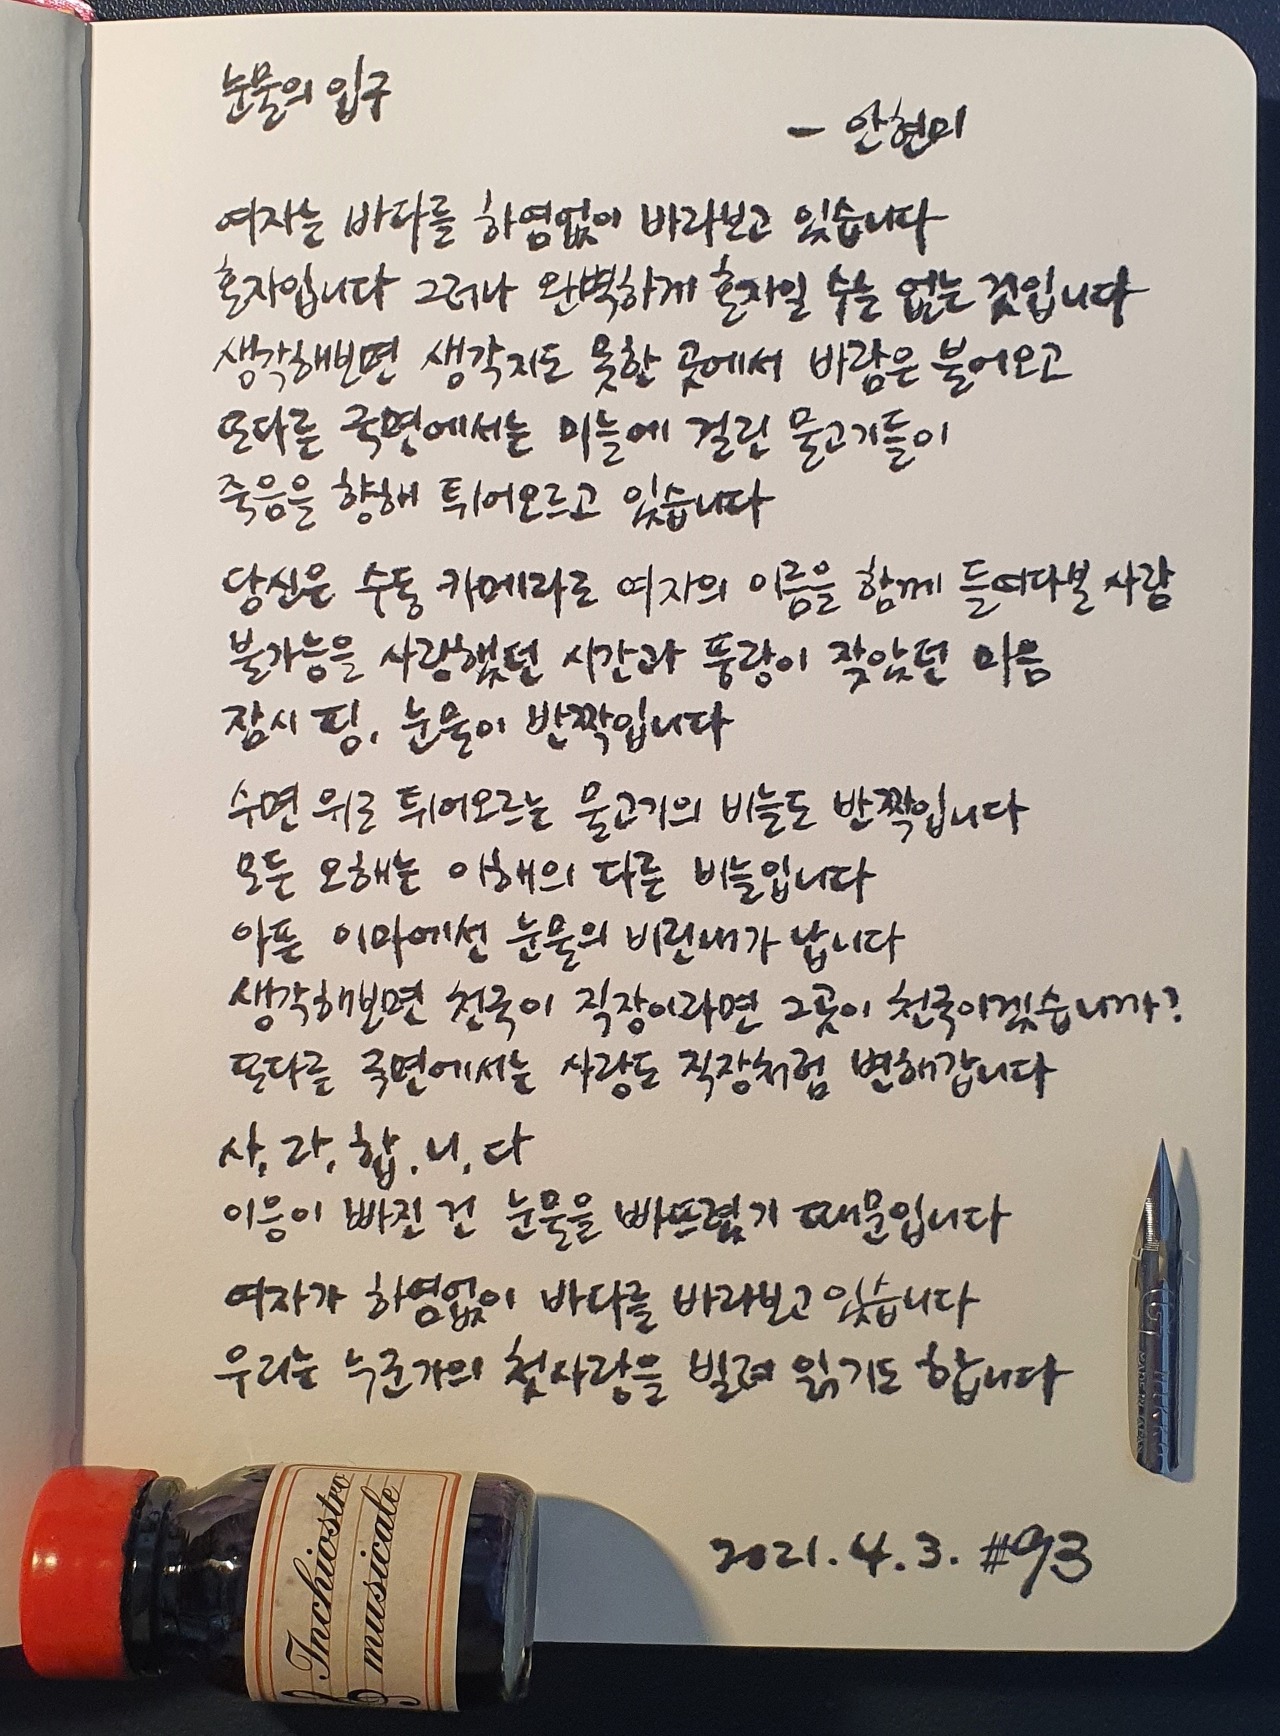 눈물의 입구
- 안현미
여자는 바다를 하염없이 바라보고 있습니다
혼자입니다 그러나 완벽하게 혼자일 수는 없는 것입니다
생각해보면 생각지도 못한 곳에서 바람은 불어오고
또다른 국면에서는 미늘에 걸린 물고기들이
죽음을 향해 튀어오르고 있습니다
당신은 수동 카메라로 여자의 이름을 함께 들여다볼 사람
불가능을 사랑했던 시간과 풍랑이 잦았던 마음
잠시 핑, 눈물이 반짝입니다
수면 위로 튀어오르는 물고기의 비늘도 반짝입니다
모든 오해는 이해의 다른 비늘입니다
아픈 이마에선 눈물의 비린내가 납니다
생각해보면 천국이 직장이라면 그곳이 천국이겠습니까?
또다른 국면에서는 사랑도 직장처럼 변해갑니다
사, 라, 합, 니, 다
이응이 빠진 건 눈물을 빠뜨렸기 때문입니다
여자가 하염없이 바다를 바라보고 있습니다
우리는 누군가의 첫사랑을 빌려 읽기도 합니다
2021. 4. 3. #93
Inchiostro
musicale
NIKKO